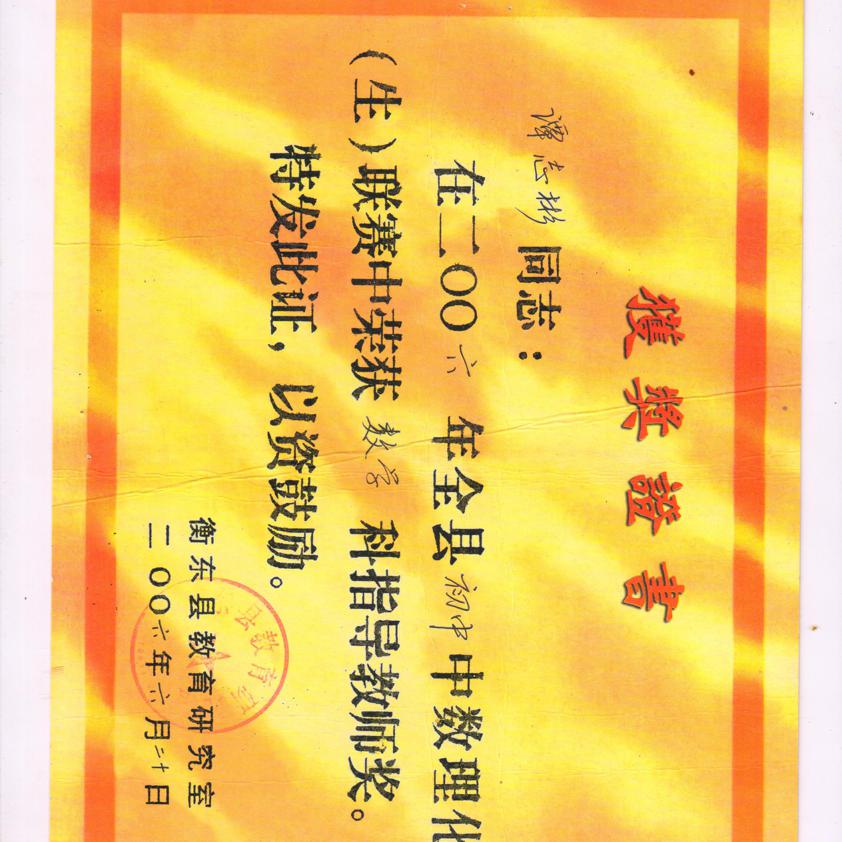 獲獎證書
谭志彬同志：
在二〇〇六年全县初中中数理化
（生）联赛中荣获数学科指导教师奖。
特发此证，以资鼓励。
衡东县教育研究室
二〇〇六年六月二十日
县教育研